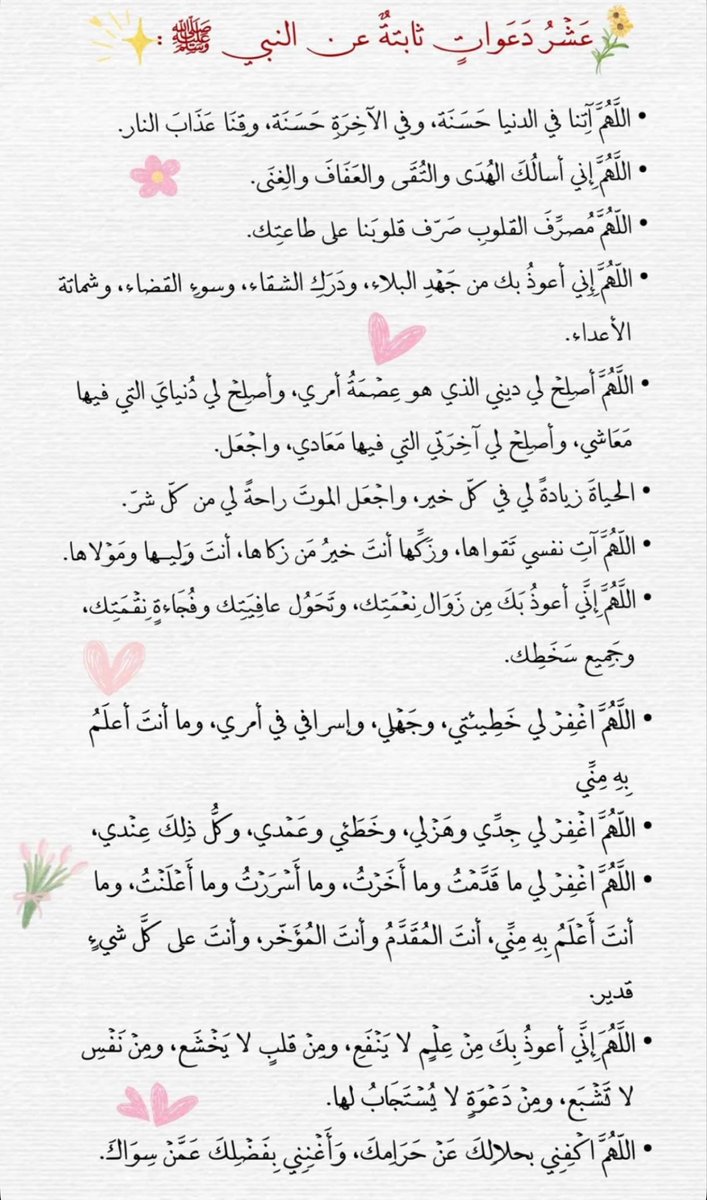 عَشْرُ دَعَواتٍ ثابتةٌ عن النبي ﷺ :
• اللَّهُمَّ آتِنا في الدنيا حَسَنَة، وفي الآخِرَةِ حَسَنَة، وقِنَا عَذَابَ النار.
• اللَّهُمَّ إني أسالُكَ الهُدَى والتُقَى والعَفَافَ والغِنَى.
• اللّهُمَّ مُصرِّفَ القلوبِ صَرّف قلوبَنا على طاعتِك.
• اللَّهُمَّ إِني أعوذُ بك من جَهْدِ البلاءِ، ودَرَكِ الشقاءِ، وسوءِ القضاءِ، وشماتة
الأعداءِ.
• اللَّهُمَّ أصلِحْ لي ديني الذي هو عِصْمَةُ أمري، وأصلِحْ لي دُنيايَ التي فيها
مَعَاشي، وأصلِحْ لي آخِرَتي التي فيها مَعَادي، واجْعَل.
• الحياةَ زيادةً لي في كلّ خير، واجْعَل الموتَ راحةً لي من كلّ شرّ.
• اللّهُمَّ آتِ نفسي تَقواها، وزَكِّها أنتَ خيرُ مَن زكاها، أنتَ وَلِيها ومَوْلاها.
• اللَّهُمَّ إِنَّي أعوذُ بَكَ مِن زَوَال نِعْمَتِك، وتَحَوُل عافِيَتِك وفُجَاءةٍ نِقْمَتِك،
وجَمِيع سَخَطِك.
• اللَّهُمَّ اغْفِرْ لي خَطِيئتي، وجَهْلي، وإسرافي في أمري، وما أنتَ أعلَمُ
بِهِ مِنِّي
• اللّهُمَّ اغْفِرْ لي جِدِّي وهَزْلي، وخَطَئي وعَمْدي، وكلُّ ذلِكَ عِنْدي،
• اللَّهُمَّ اغْفِرْ لي ما قَدَّمْتُ وما أَخَرْتُ، وما أَسْرَرْتُ وما أَعْلَنْتُ، وما
أنتَ أَعْلَمُ بِهِ مِنِّي، أنتَ المُقَدَّمُ وأنتَ المُؤَخّر، وأنتَ على كلَّ شيءٍ
قدير.
• اللَّهُمَ إِنَّي أعوذُ بِكَ مِنْ عِلْمٍ لا يَنْفَعِ، ومِنْ قلبٍ لا يَخْشَع، ومِنْ نَفْسِ
لا تَشْبَع، ومِنْ دَعْوَةٍ لا يُسْتَجَابُ لها.
• اللّهُمَّ اكْفِنِي بحلالِكَ عَنْ حَرَامِكَ، وَأَغْنِنِي بِفَضْلِكَ عَمَّنْ سِوَاكَ.